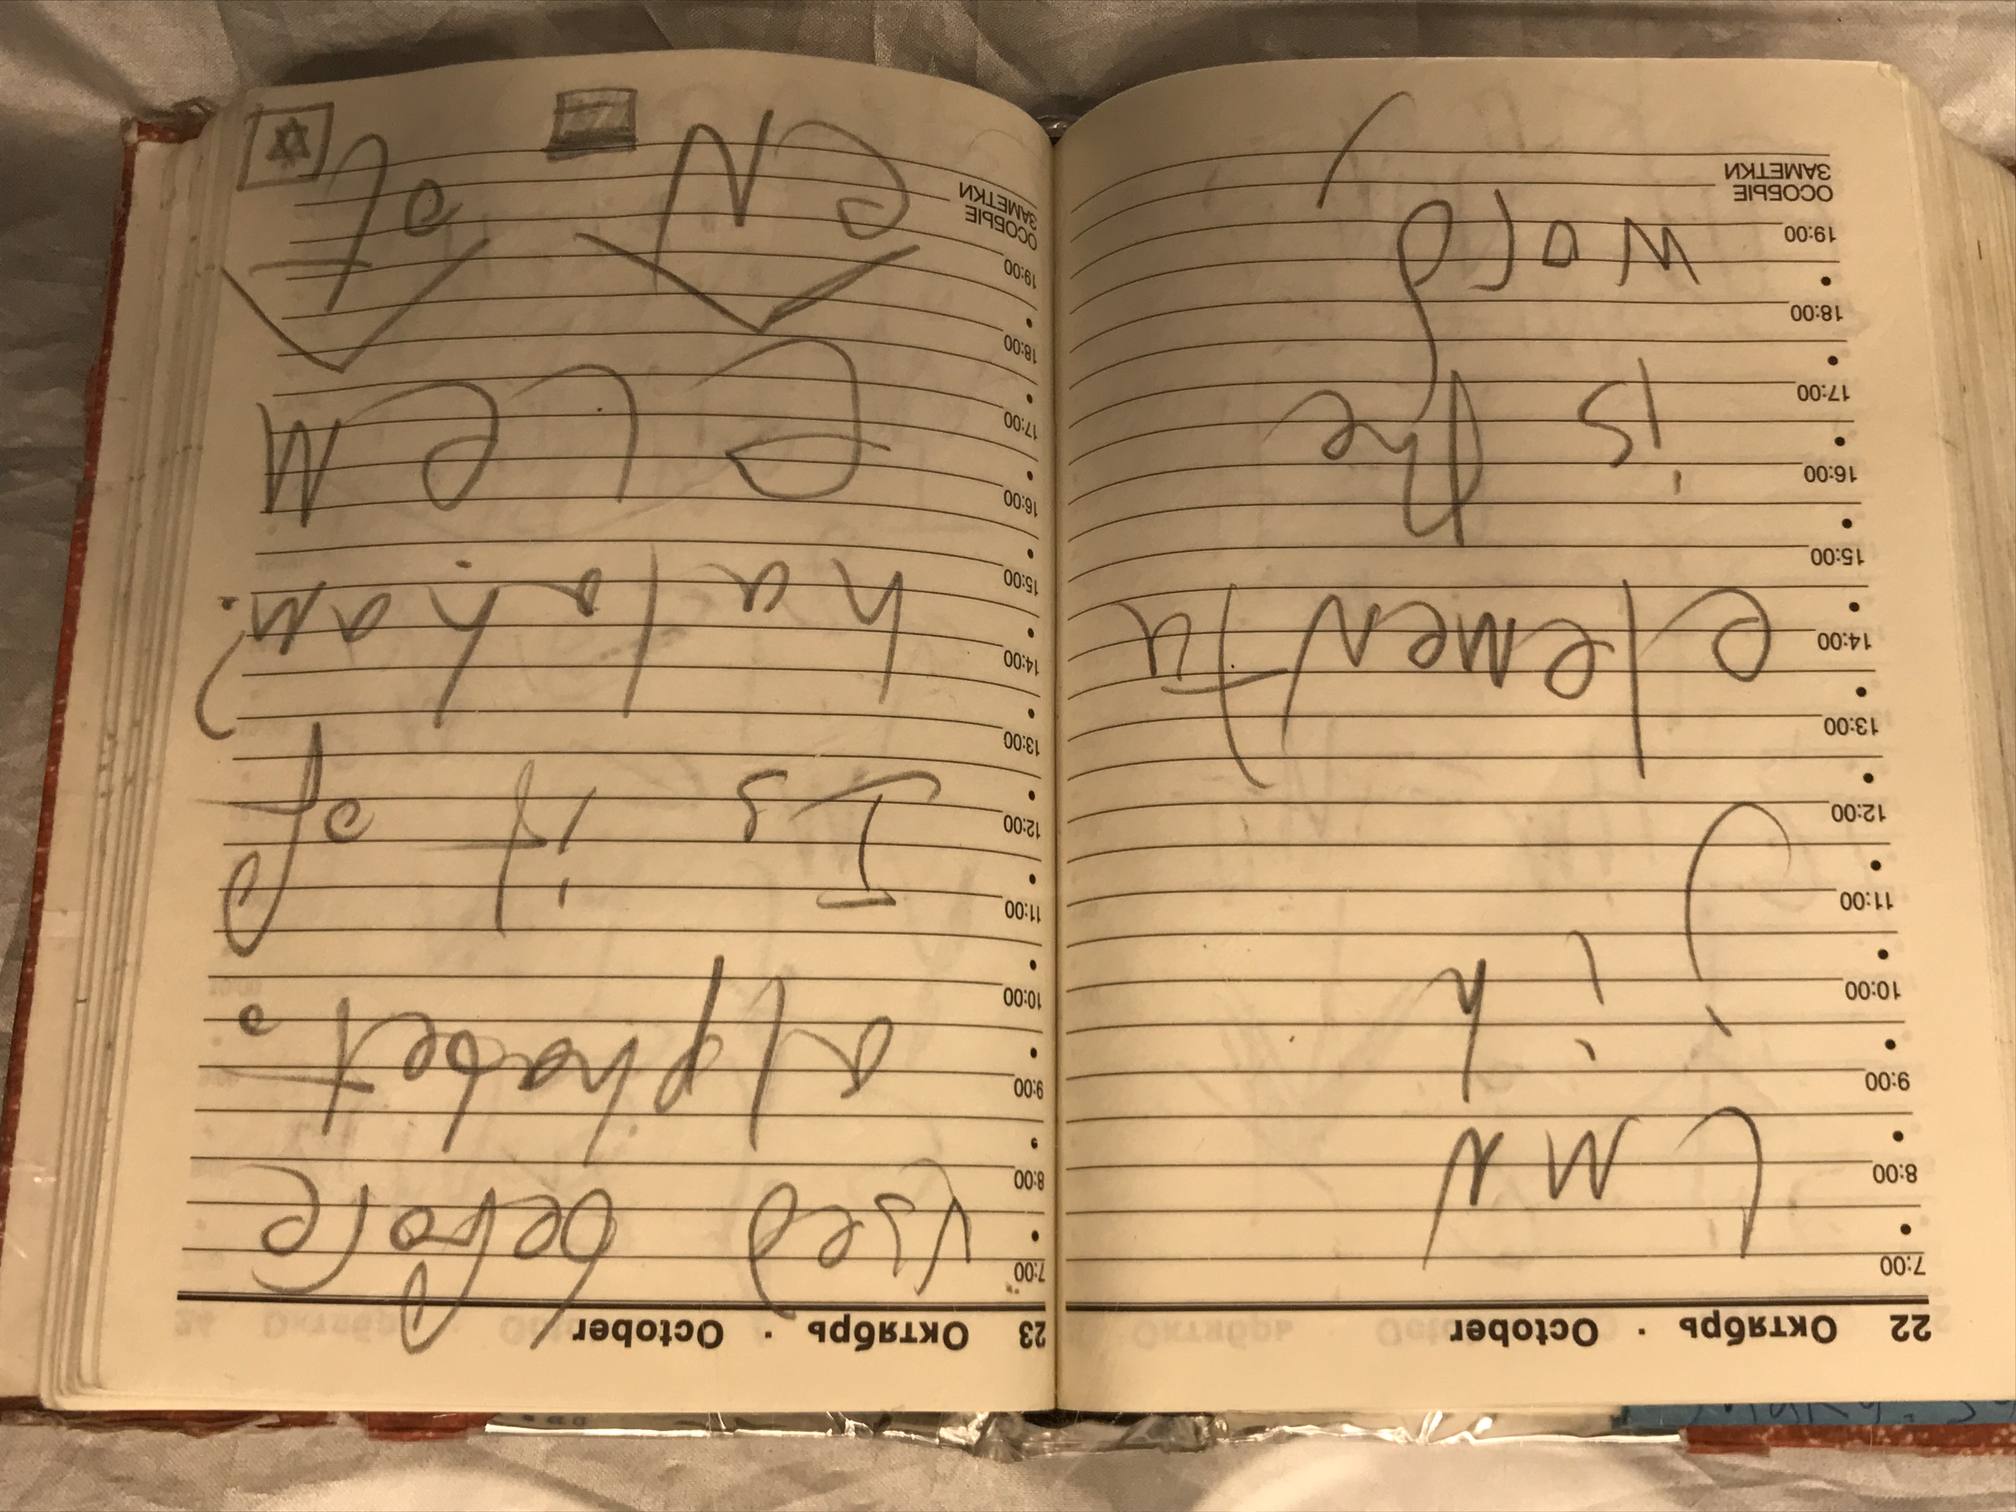 22 Октябрь · October
7:00
8:00
9:00
10:00
11:00
12:00
13:00
14:00
15:00
16:00
17:00
18:00
19:00
ОСОБЫЕ
ЗАМЕТКИ
L M N
j i h
elementu
is the
word
23 Октябрь · October
7:00
8:00
9:00
10:00
11:00
12:00
13:00
14:00
15:00
16:00
17:00
18:00
19:00
ОСОБЫЕ
ЗАМЕТКИ
used before
alphabet.
Is it of
halaham?
e L e M
e N ot